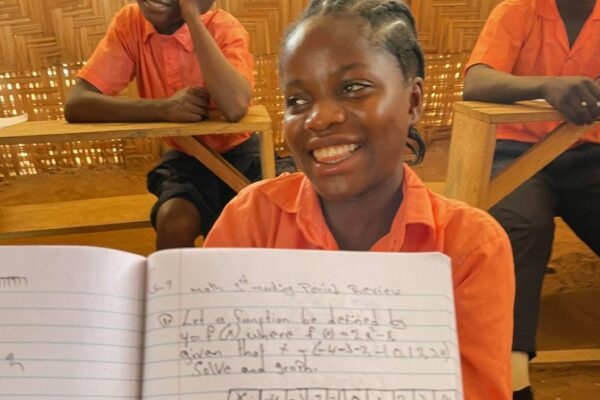 math 3rd Marking Period Review
Let a function be defined by
y = f(x) where f(x) = 2x-
given that x = (-4-3-2,-1,0,1,2,3,4)
Solve and graph.
x -4 -3 -2 -1 0 1 2 3